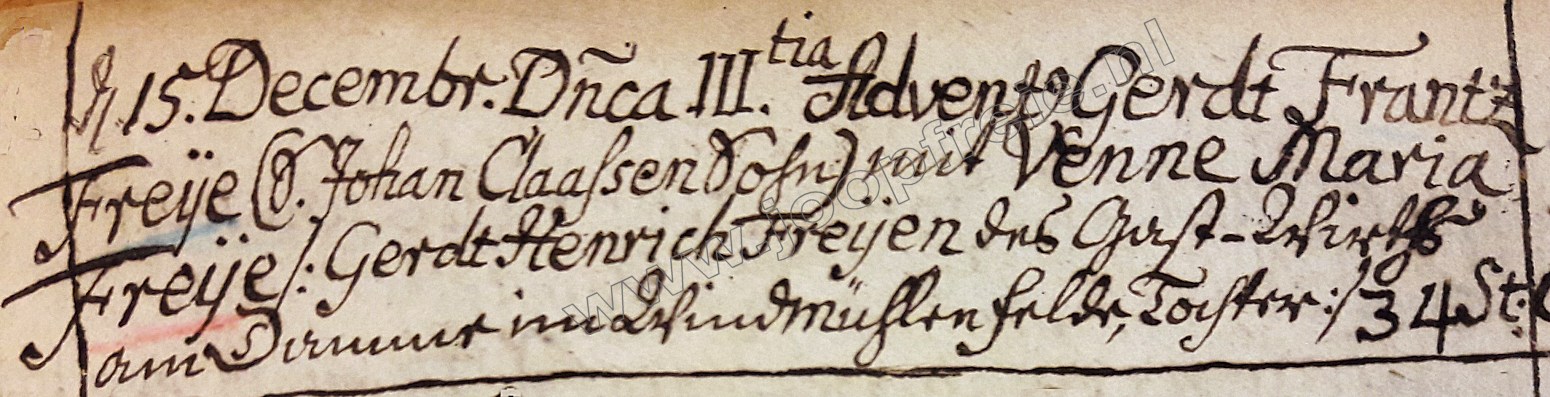 d. 15. Decembr. Dn̄ca III.tia Advents Gerdt Frantz
Freije (S. Johan Claaßen Sohn) mit Venne Maria
Freije /: Gerdt Henrich Freijen des Gast-Wirths
am Damme im Windmühlenfelde, Tochter :/ 34 St:
www.joopfreije.nl